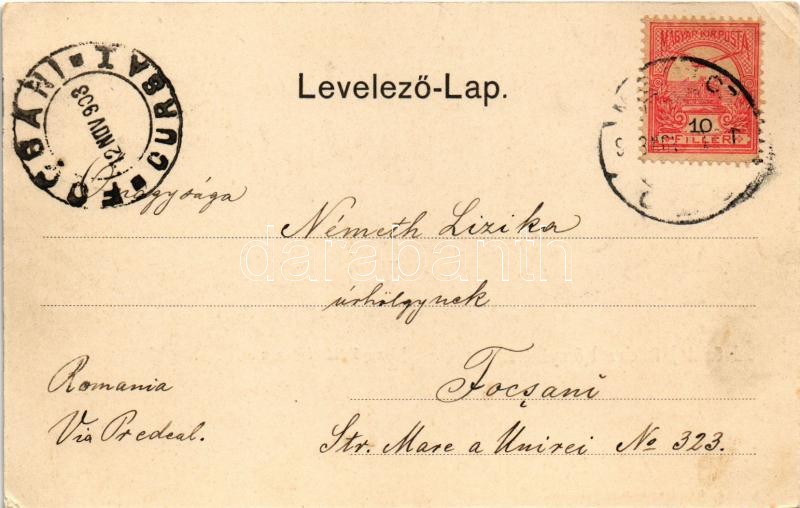 Levelező-Lap.
MAGYAR KIR. POSTA
10
FILLÉR
FOCSANI
CURSA I
12 NOV 903
Nagysága
Németh Lizika
úrhölgynek
Romania
Focșani
Via Predeal.
Str. Mare a Unirei No 323.
darabanth